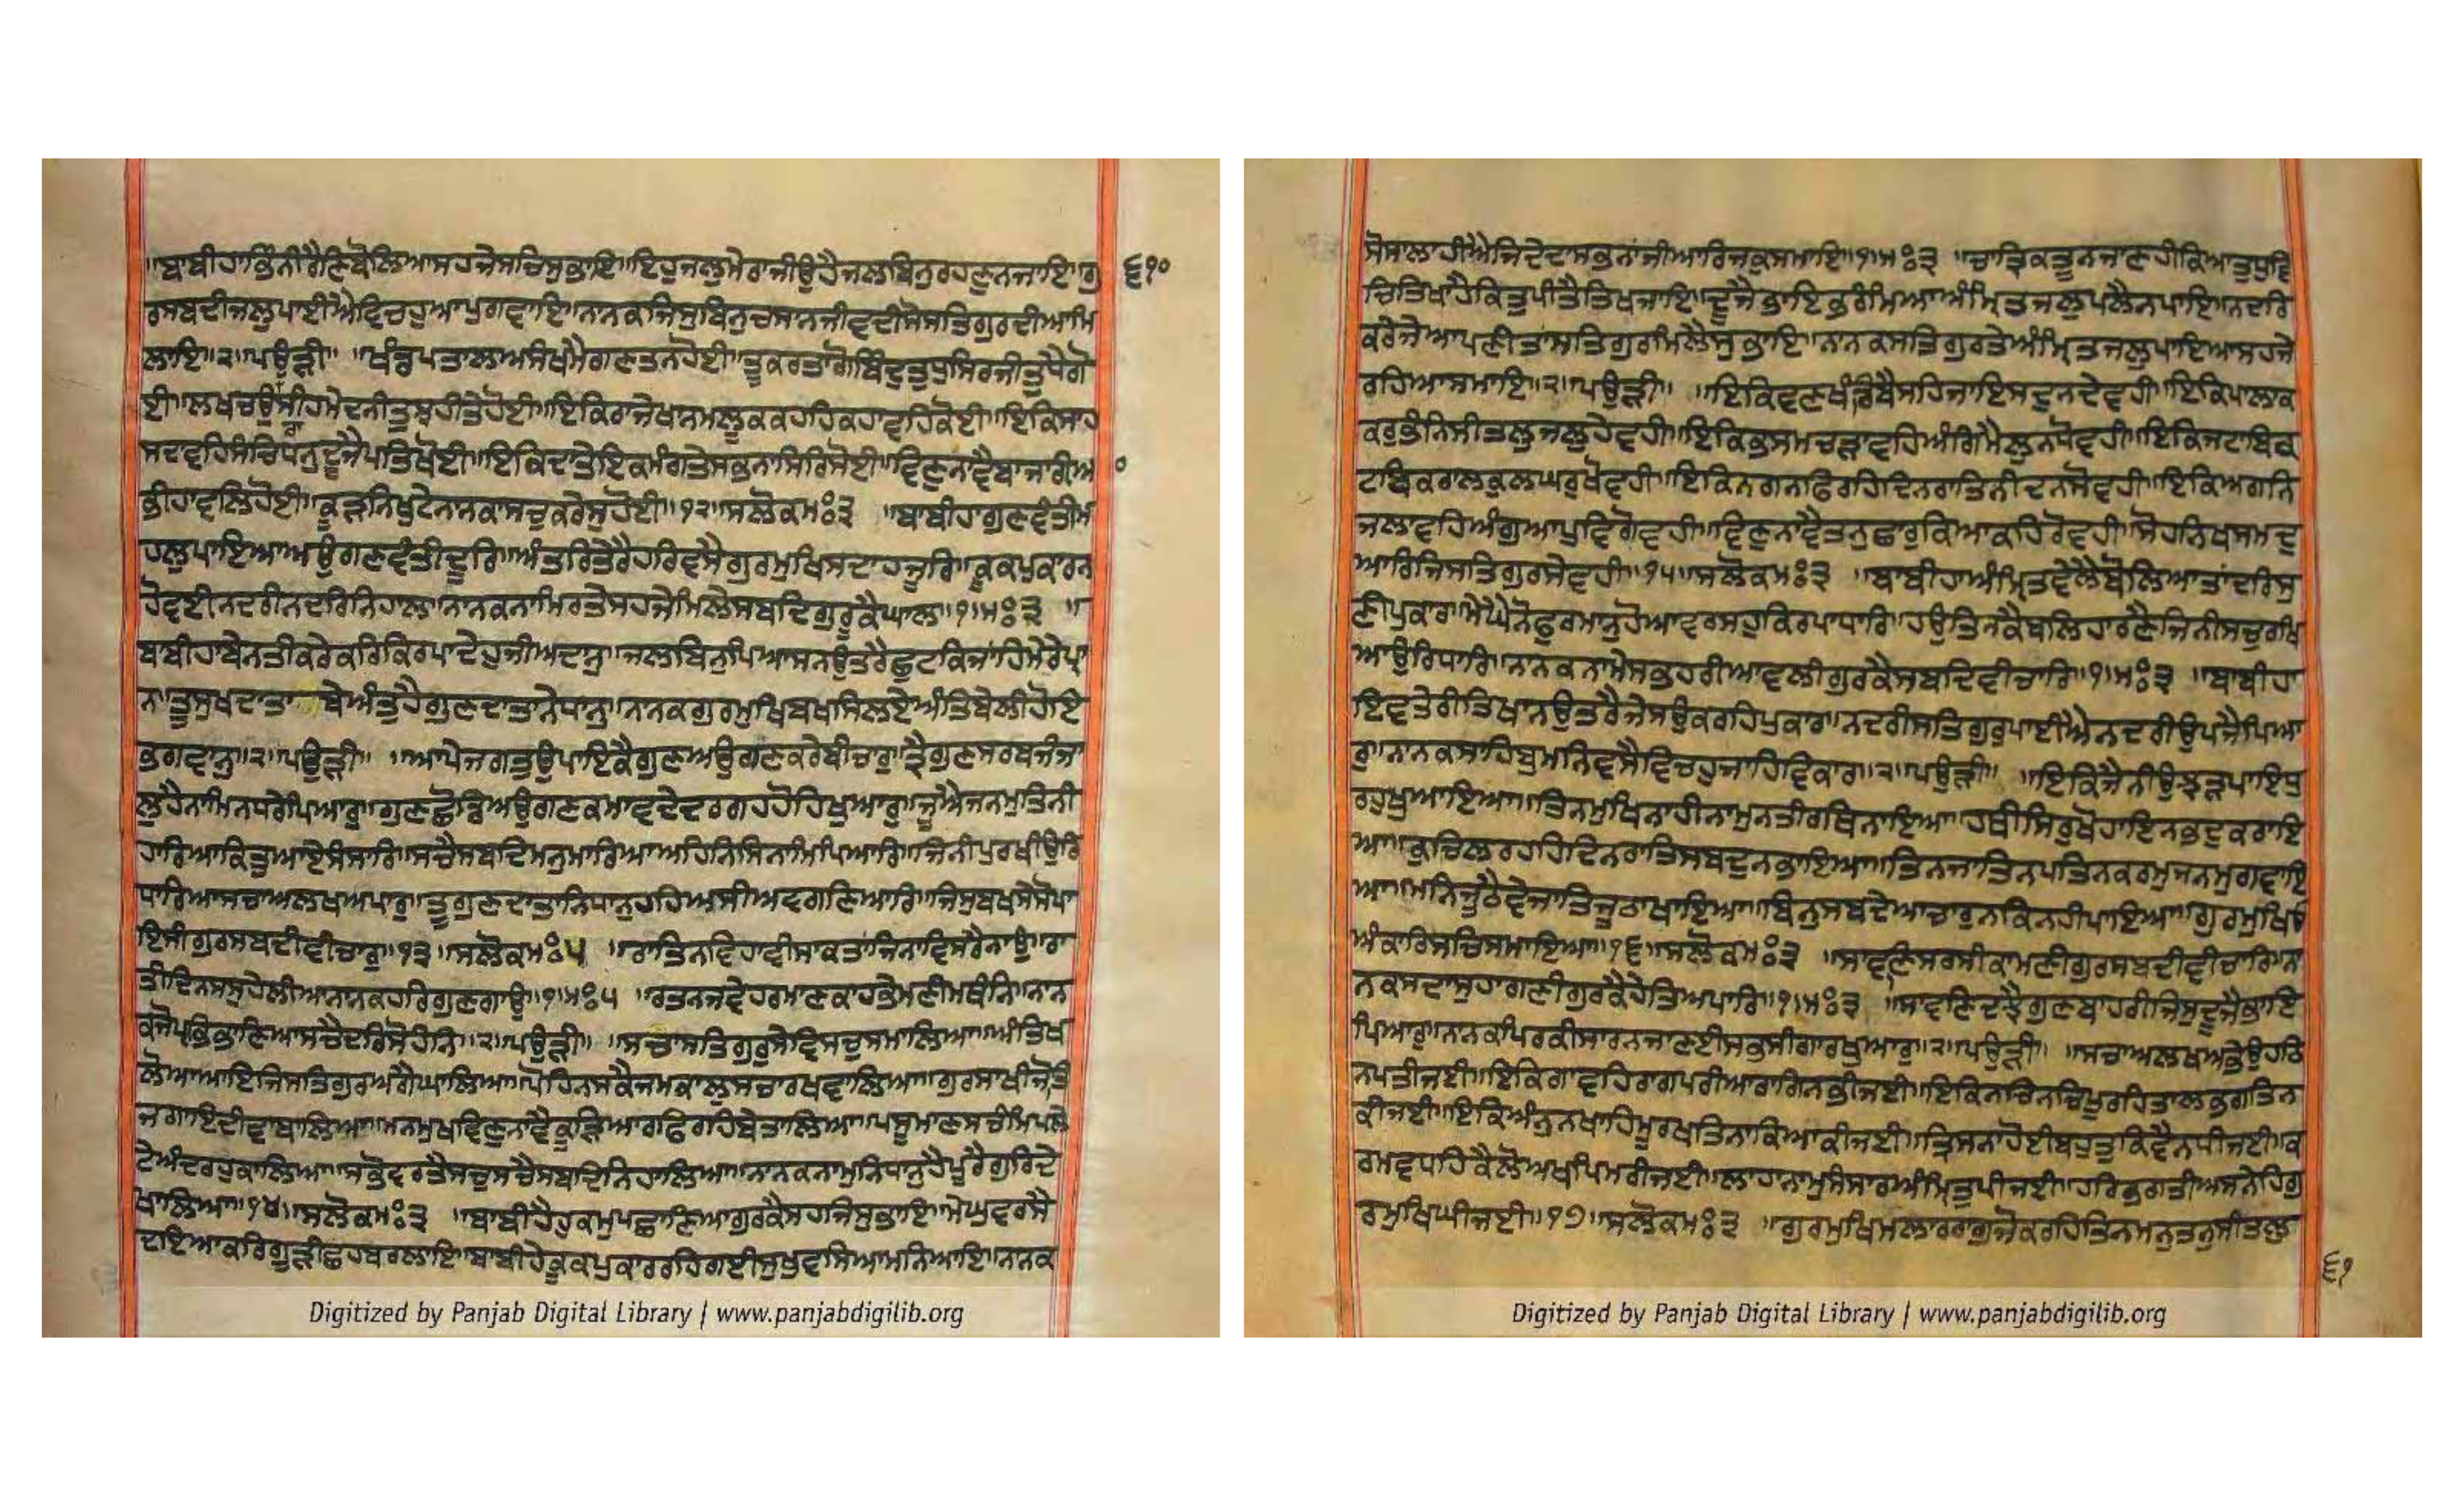 ॥ਬਾਬੀਹਾਭਿੰਨੀਰੈਣਿਬੋਲਿਆਸਹਜੇਸਚਿਸੁਭਾਇ॥ਇਹੁਜਲੁਮੇਰਾਜੀਉਹੈਜਲਬਿਨੁਰਹਣੁਨਜਾਇ॥ਗੁ
੬੧੦
ਰਸਬਦੀਜਲੁਪਾਈਐਵਿਚਹੁਆਪੁਗਵਾਇ॥ਨਾਨਕਜਿਸੁਬਿਨੁਚਸਾਨਜੀਵਦੀਸੋਸਤਿਗੁਰਦੀਆਮਿ
ਲਾਇ॥੨॥ਪਉੜੀ॥ ॥ਖੰਡਪਤਾਲਅਸੰਖਮੈਗਣਤਨਹੋਈ॥ਤੂਕਰਤਾਗੋਬਿੰਦੁਤੁਧੁਸਿਰਜੀਤੁਧੈਗੋ
ਈ॥ਲਖਚਉਰਾਸੀਹਮੇਦਨੀਤੁਝਹੀਤੇਹੋਈ॥ਇਕਿਰਾਜੇਖਾਨਮਲੂਕਕਹਹਿਕਹਾਵਹਿਕੋਈ॥ਇਕਿਸਾਹ
ਸਦਵਹਿਸੰਚਿਧਨੁਦੂਜੈਪਤਿਖੋਈ॥ਇਕਿਦਾਤੇਇਕਮੰਗਤੇਸਭਨਾਸਿਰਿਸੋਈ॥ਵਿਣੁਨਾਵੈਬਾਜਾਰੀਆ
ਭੀਹਾਵਲਿਹੋਈ॥ਕੂੜਨਿਖੁਟੇਨਾਨਕਾਸਚੁਕਰੇਸੁਹੋਈ॥੧੨॥ਸਲੋਕਮਃ੩ ॥ਬਾਬੀਹਾਗੁਣਵੰਤੀਮ
ਹਲੁਪਾਇਆਅਉਗਣਵੰਤੀਦੂਰਿ॥ਅੰਤਰਿਤੇਰੈਹਰਿਵਸੈਗੁਰਮੁਖਿਸਦਾਹਜੂਰਿ॥ਕੂਕਪੁਕਾਰਨ
ਹੋਵਈਨਦਰੀਨਦਰਿਨਿਹਾਲ॥ਨਾਨਕਨਾਮਿਰਤੇਸਹਜੇਮਿਲੇਸਬਦਿਗੁਰੂਕੈਘਾਲ॥੧॥ਮਃ੩ ॥
ਬਬੀਹਾਬੇਨਤੀਕਰੇਕਰਿਕਿਰਪਾਦੇਹੁਜੀਅਦਾਨੁ॥ਜਲਬਿਨੁਪਿਆਸਨਉਤਰੈਛੁਟਕਿਜਾਂਹਿਮੇਰੇਪ੍ਰਾ
ਨ॥ਤੂਸੁਖਦਾਤਾ ਬੇਅੰਤੁਹੈਗੁਣਦਾਤਾਨੇਧਾਨੁ॥ਨਾਨਕਗੁਰਮੁਖਿਬਖਸਿਲਏਅੰਤਿਬੇਲੀਹੋਇ
ਭਗਵਾਨੁ॥੨॥ਪਉੜੀ॥ ॥ਆਪੇਜਗਤੁਉਪਾਇਕੈਗੁਣਅਉਗਣਕਰੇਬੀਚਾਰੁ॥ਤ੍ਰੈਗੁਣਸਰਬਜੰਜਾ
ਲੁਹੈਨਾਮਿਨਧਰੇਪਿਆਰੁ॥ਗੁਣਛੋਡਿਅਉਗਣਕਮਾਵਦੇਦਰਗਹਹੋਹਿਖੁਆਰੁ॥ਜੂਐਜਨਮੁਤਿਨੀ
ਹਾਰਿਆਕਿਤੁਆਏਸੰਸਾਰਿ॥ਸਚੈਸਬਦਿਮਨੁਮਾਰਿਆਅਹਿਨਿਸਿਨਾਮਿਪਿਆਰਿ॥ਜਿਨੀਪੁਰਖੀਉਰਿ
ਧਾਰਿਆਸਚਾਅਲਖਅਪਾਰੁ॥ਤੂਗੁਣਦਾਤਾਨਿਧਾਨੁਹਹਿਅਸੀਅਵਗਣਿਆਰਿ॥ਜਿਸੁਬਖਸੇਸੋਪਾ
ਇਸੀਗੁਰਸਬਦੀਵੀਚਾਰੁ॥੧੩॥ਸਲੋਕਮਃ੫ ॥ਰਾਤਿਨਵਿਹਾਵੀਸਾਕਤਾਂਜਿਨਾਵਿਸਰੈਨਾਉ॥ਰਾ
ਤੀਦਿਨਸਸੁਹੇਲੀਆਨਾਨਕਹਰਿਗੁਣਗਾਉ॥੧॥ਮਃ੫ ॥ਰਤਨਜਵੇਹਰਮਾਣਕਾਹਭੇਮਣੀਮਥੰਨਿ॥ਨਾਨ
ਕਜੋਪ੍ਰਭਿਭਾਣਿਆਸਚੈਦਰਿਸੋਹੰਨਿ॥੨॥ਪਉੜੀ॥ ॥ਸਚਾਸਤਿਗੁਰੁਸੇਵਿਸਚੁਸਮਾਲਿਆ॥ਅੰਤਿਖ
ਲੋਆਆਇਜਿਸਤਿਗੁਰਅਗੈਘਾਲਿਆ॥ਪੋਹਿਨਸਕੈਜਮਕਾਲੁਸਚਾਰਖਵਾਲਿਆ॥ਗੁਰਸਾਖੀਜੋਤਿ
ਜਗਾਇਦੀਵਾਬਾਲਿਆ॥ਮਨਮੁਖਵਿਣੁਨਾਵੈਕੂੜਿਆਰਫਿਰਹਿਬੇਤਾਲਿਆ॥ਪਸੂਮਾਣਸਚੰਮਿਪਲੇ
ਟੇਅੰਦਰਹੁਕਾਲਿਆ॥ਸਭੋਵਰਤੈਸਚੁਸਚੈਸਬਦਿਨਿਹਾਲਿਆ॥ਨਾਨਕਨਾਮੁਨਿਧਾਨੁਹੈਪੂਰੈਗੁਰਿਦੇ
ਖਾਲਿਆ॥੧੪॥ਸਲੋਕਮਃ੩ ॥ਬਾਬੀਹੈਹੁਕਮੁਪਛਾਣਿਆਗੁਰਕੈਸਹਜਿਸੁਭਾਇ॥ਮੇਘੁਵਰਸੈ
ਦਇਆਕਰਿਗੂੜੀਛਹਬਰਲਾਇ॥ਬਾਬੀਹੇਕੂਕਪੁਕਾਰਰਹਿਗਈਸੁਖੁਵਸਿਆਮਨਿਆਇ॥ਨਾਨਕ
Digitized by Panjab Digital Library | www.panjabdigilib.org
ਸੋਸਾਲਾਹੀਐਜਿਦੇਦਾਸਭਨਾਂਜੀਆਰਿਜਕੁਸਮਾਇ॥੧॥ਮਃ੩ ॥ਚਾਤ੍ਰਿਕਤੂਨਜਾਣਹੀਕਿਆਤੁਧੁਵਿ
ਚਿਤਿਖਾਹੈਕਿਤੁਪੀਤੈਤਿਖਜਾਇ॥ਦੂਜੈਭਾਇਭਰੰਮਿਆਅੰਮ੍ਰਿਤਜਲੁਪਲੈਨਪਾਇ॥ਨਦਰਿ
ਕਰੇਜੇਆਪਣੀਤਾਂਸਤਿਗੁਰਮਿਲੈਸੁਭਾਇ॥ਨਾਨਕਸਤਿਗੁਰਤੇਅੰਮ੍ਰਿਤਜਲੁਪਾਇਆਸਹਜੇ
ਰਹਿਆਸਮਾਇ॥੨॥ਪਉੜੀ॥ ॥ਇਕਿਵਣਖੰਡਿਬੈਸਹਿਜਾਇਸਦੁਨਦੇਵਹੀ॥ਇਕਿਪਾਲਾਕ
ਕਰੁਭੰਨਿਸੀਤਲੁਜਲੁਹੇਵਹੀ॥ਇਕਿਭਸਮਚੜਾਵਹਿਅੰਗਿਮੈਲੁਨਧੋਵਹੀ॥ਇਕਿਜਟਾਬਿਕ
ਟਬਿਕਰਾਲਕੁਲਘਰੁਖੋਵਹੀ॥ਇਕਿਨਗਨਫਿਰਹਿਦਿਨਰਾਤਿਨੀਦਨਸੋਵਹੀ॥ਇਕਿਅਗਨਿ
ਜਲਾਵਹਿਅੰਗੁਆਪੁਵਿਗੋਵਹੀ॥ਵਿਣੁਨਾਵੈਤਨੁਛਾਰੁਕਿਆਕਹਿਰੋਵਹੀ॥ਸੋਹਨਿਖਸਮਦੁ
ਆਰਿਜਿਸਤਿਗੁਰਸੇਵਹੀ॥੧੫॥ਸਲੋਕਮਃ੩ ॥ਬਾਬੀਹਾਅੰਮ੍ਰਿਤਵੇਲੈਬੋਲਿਆਤਾਂਦਰਿਸੁ
ਣੀਪੁਕਾਰ॥ਮੇਘੈਨੋਫੁਰਮਾਨੁਹੋਆਵਰਸਹੁਕਿਰਪਾਧਾਰਿ॥ਹਉਤਿਨਕੈਬਲਿਹਾਰਣੈਜਿਨੀਸਚੁਰਖਿ
ਆਉਰਿਧਾਰਿ॥ਨਾਨਕਨਾਮੇਸਭਹਰੀਆਵਲੀਗੁਰਕੈਸਬਦਿਵੀਚਾਰਿ॥੧॥ਮਃ੩ ॥ਬਾਬੀਹਾ
ਇਵਤੇਰੀਤਿਖਾਨਉਤਰੈਜੇਸਉਕਰਹਿਪੁਕਾਰ॥ਨਦਰੀਸਤਿਗੁਰੁਪਾਈਐਨਦਰੀਉਪਜੈਪਿਆ
ਰੁ॥ਨਾਨਕਸਾਹਿਬੁਮਨਿਵਸੈਵਿਚਹੁਜਾਹਿਵਿਕਾਰ॥੨॥ਪਉੜੀ॥ ॥ਇਕਿਜੈਨੀਉਝੜਪਾਇਧੁ
ਰਹੁਖੁਆਇਆ॥ਤਿਨਮੁਖਿਨਾਹੀਨਾਮੁਨਤੀਰਥਿਨਾਇਆ॥ਹਥੀਸਿਰੁਖੋਹਾਇਨਭਦੁਕਰਾਇ
ਆ॥ਕੁਚਿਲਰਹਹਿਦਿਨਰਾਤਿਸਬਦੁਨਭਾਇਆ॥ਤਿਨਜਾਤਿਨਪਤਿਨਕਰਮੁਜਨਮੁਗਵਾਇ
ਆ॥ਮਨਿਜੂਠੈਵੇਜਾਤਿਜੂਠਾਖਾਇਆ॥ਬਿਨੁਸਬਦੈਆਚਾਰੁਨਕਿਨਹੀਪਾਇਆ॥ਗੁਰਮੁਖਿਓ
ਅੰਕਾਰਿਸਚਿਸਮਾਇਆ॥੧੬॥ਸਲੋਕਮਃ੩ ॥ਸਾਵਣਿਸਰਸੀਕਾਮਣੀਗੁਰਸਬਦੀਵੀਚਾਰਿ॥ਨਾ
ਨਕਸਦਾਸੁਹਾਗਣੀਗੁਰਕੈਹੇਤਿਅਪਾਰਿ॥੧॥ਮਃ੩ ॥ਸਾਵਣਿਦਝੈਗੁਣਬਾਹਰੀਜਿਸੁਦੂਜੈਭਾਇ
ਪਿਆਰੁ॥ਨਾਨਕਪਿਰਕੀਸਾਰਨਜਾਣਈਸਭੁਸੀਗਾਰੁਖੁਆਰੁ॥੨॥ਪਉੜੀ॥ ॥ਸਚਾਅਲਖਅਭੇਉਹਠਿ
ਨਪਤੀਜਈ॥ਇਕਿਗਾਵਹਿਰਾਗਪਰੀਆਰਾਗਿਨਭੀਜਈ॥ਇਕਿਨਚਿਨਚਿਪੂਰਹਿਤਾਲਭਗਤਿਨ
ਕੀਜਈ॥ਇਕਿਅੰਨੁਨਖਾਹਿਮੂਰਖਤਿਨਾਕਿਆਕੀਜਈ॥ਤ੍ਰਿਸਨਾਹੋਈਬਹੁਤੁਕਿਵੈਨਧੀਜਈ॥ਕ
ਰਮਵਧਹਿਕੈਲੋਅਖਪਿਮਰੀਜਈ॥ਲਾਹਾਨਾਮੁਸੰਸਾਰਅੰਮ੍ਰਿਤੁਪੀਜਈ॥ਹਰਿਭਗਤੀਅਸਨੇਹਿਗੁ
ਰਮੁਖਿਘੀਜਈ॥੧੭॥ਸਲੋਕਮਃ੩ ॥ਗੁਰਮੁਖਿਮਲਾਰਰਾਗੁਜੋਕਰਹਿਤਿਨਮਨੁਤਨੁਸੀਤਲੁ
੬੧
Digitized by Panjab Digital Library | www.panjabdigilib.org